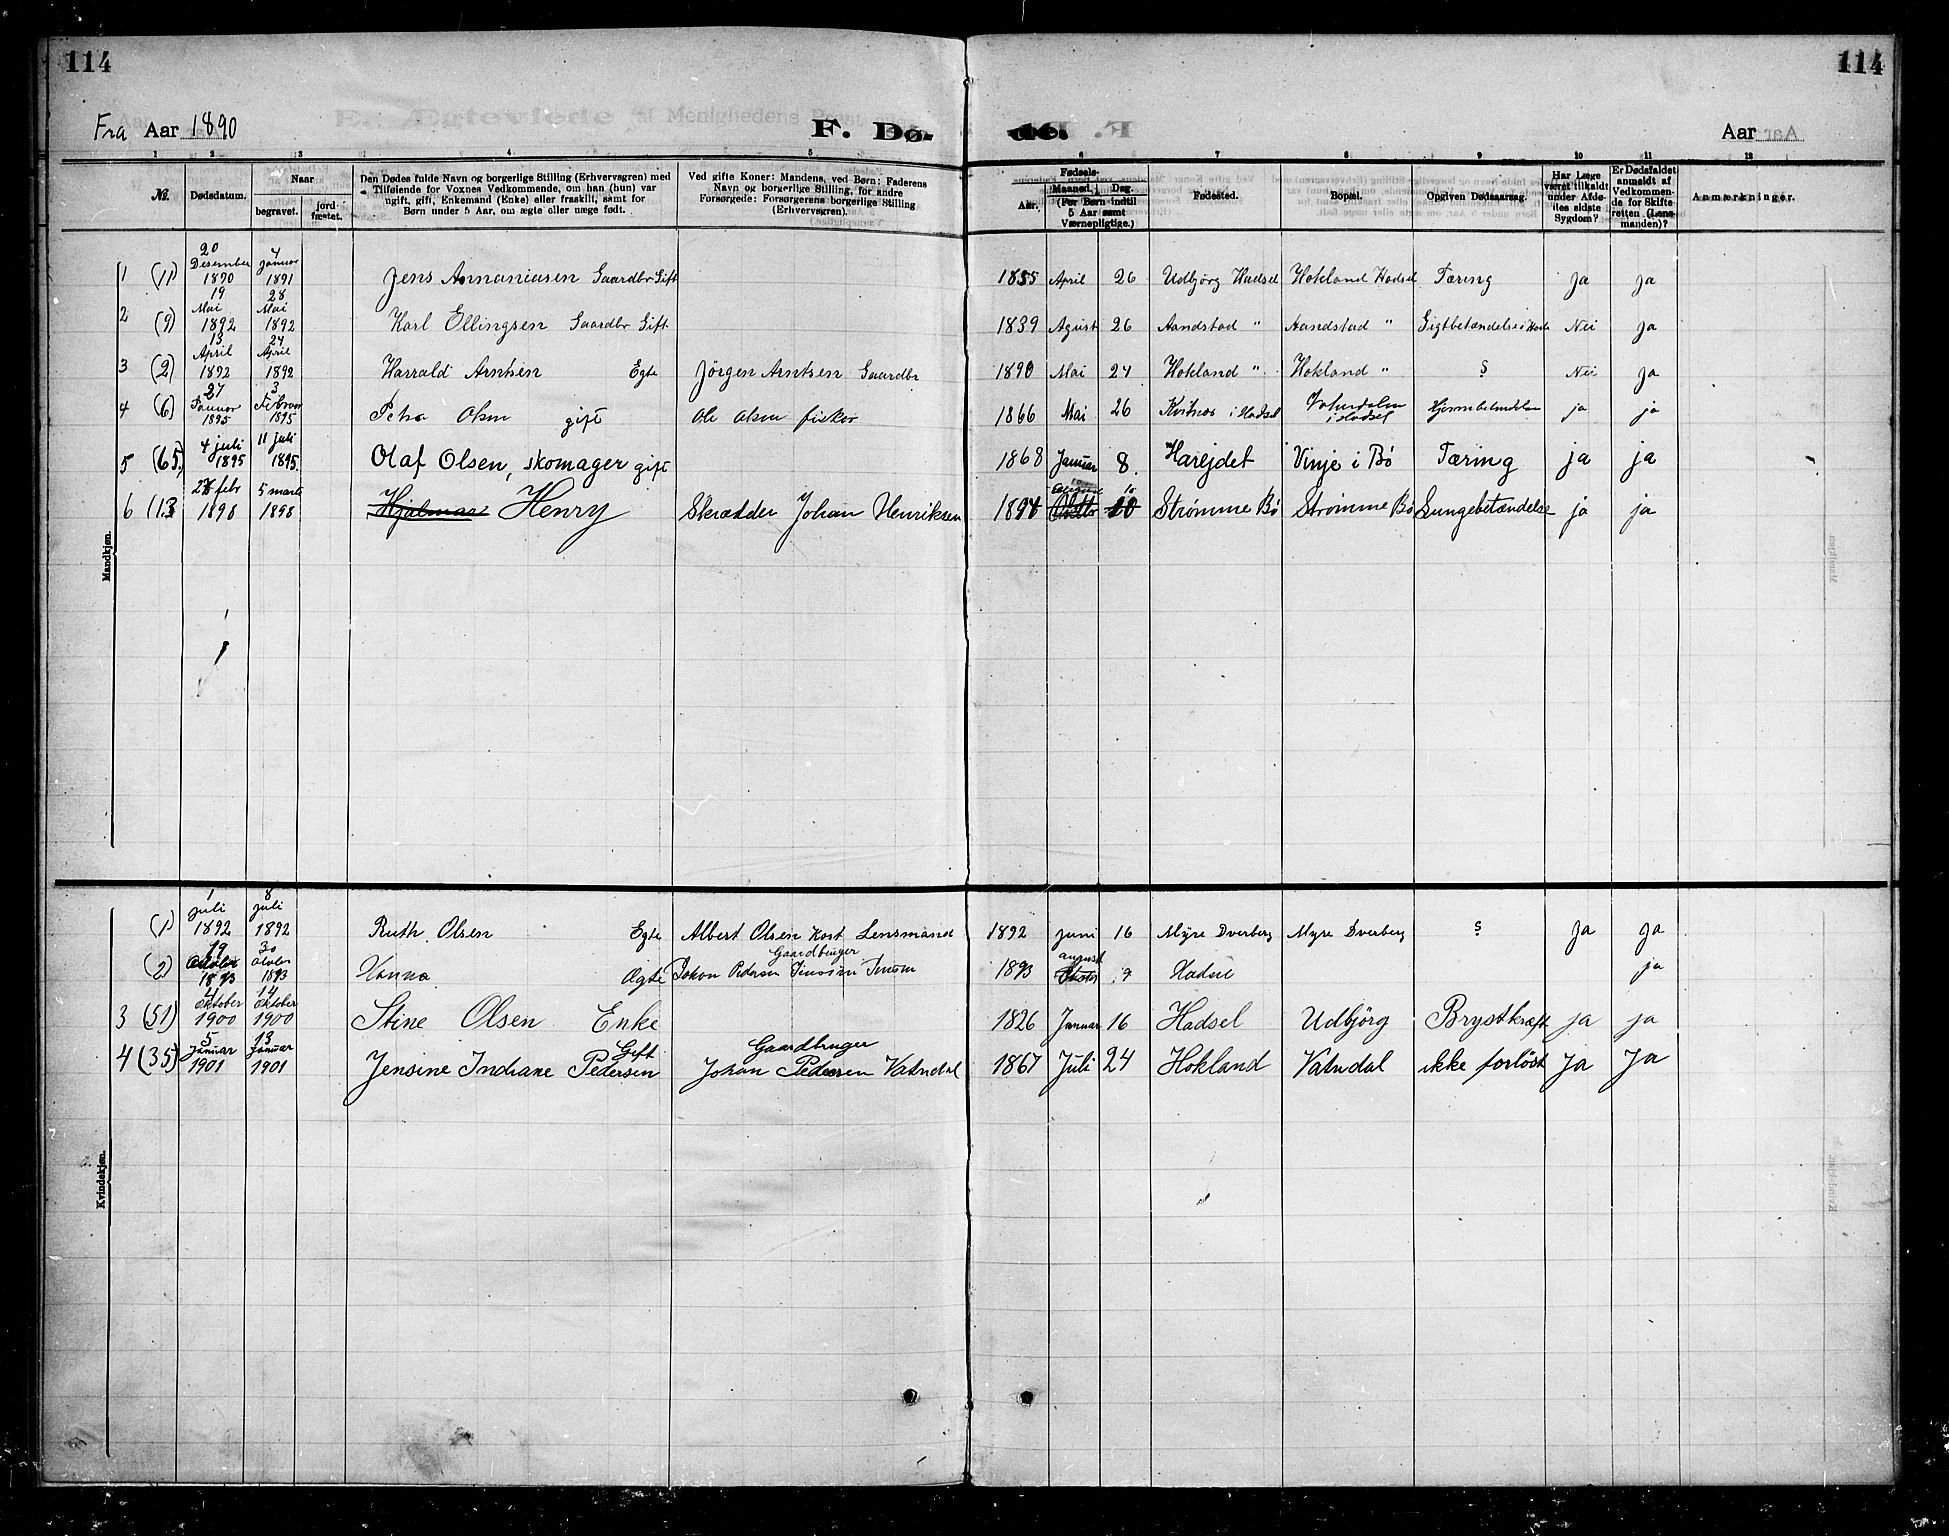 114
114
Fra Aar 1890
F. Dø-
de.
Aar
1 2 3 4 5 6 7 8 9 10 11 12
№. Dødsdatum. Naar begravet. jordfæstet.
Den Dødes fulde Navn og borgerlige Stilling (Erhvervsgren) med
Tilføiende for Voxnes Vedkommende, om han (hun) var
ugift, gift, Enkemand (Enke) eller fraskilt, samt for
Børn under 5 Aar, om ægte eller uægte født.
Ved gifte Koner: Mandens, ved Børn: Faderens
Navn og borgerlige Stilling, for andre
Forsørgede: Forsørgerens borgerlige Stilling
(Erhvervsgren).
Fødsels-
Aar. Maaned. Dag.
(For Børn indtil
5 Aar samt
Værnepligtige.)
Fødested. Bopæl. Opgiven Dødsaarsag.
Har Læge
været tilkaldt
under Afdø-
des sidste
Sygdom?
Er Dødsfaldet
anmeldt af
Vedkommen-
de for Skifte-
retten (Lens-
manden)?
Anmærkninger.
Mandkjøn.
1 (11) 20 Desember 1890 4 Januar 1891 Jens Annaniasen Gaardbr Gift 1855 April 26 Udbjörg Hadsel Hokland Hadsel Tæring Ja Ja
2 (9) 19 Mai 1892 28 Mai 1892 Karl Ellingsen Gaardbr Gift 1839 Agust 26 Aandstad " Aandstad " Gigtbetændelse i Nei Ja
3 (2) 13 April 1892 24 April 1892 Harrald Arntsen Egte Jörgen Arntsen Gaardbr 1890 Mai 24 Hokland " Hokland " ? Nei Ja
4 (6) 27 Januar 1895 3 Februar 1895 Petra Olsen gift Ole Olsen fisker 1866 Mai 26 Kvitnes i Hadsel i Hadsel ja ja
5 (65.) 4 juli 1895 11 juli 1895. Olaf Olsen, skomager gift 1868 Januar 8. Harejdet Vinje i Bø Tæring ja ja
6 (13 febr 1898 5 marts 1898 Hjalmar Henry Skrædder Johan Henriksen August 10 Strømme Bø Strømme Bø Lungebetændelse ja ja
Kvindekjøn.
(1) 1 juli 1892 8 juli 1892 Ruth Olsen Egte Albert Olsen Kost Lensmand 1892 juni 16 Myre Dverberg Myre Dverberg ? Ja Ja
(2) 19 Oktober 1893 30 Oktober 1893 Hanna Ogte Johan Pedersen Gaardbruger 1893 august 9 Hadsel ja
3 (51) 4 Oktober 1900 14 Oktober 1900 Stine Olsen Enke 1826 Januar 16 Hadsel Udbjörg Brystkræft ja ja
4 (35) 5 Januar 1901 13 Januar 1901 Jensine Indiane Pedersen Gift Gaardbruger Johan Pedersen Vatndal 1867 Juli 24 Hokland Vatndal ikke forløst Ja Ja